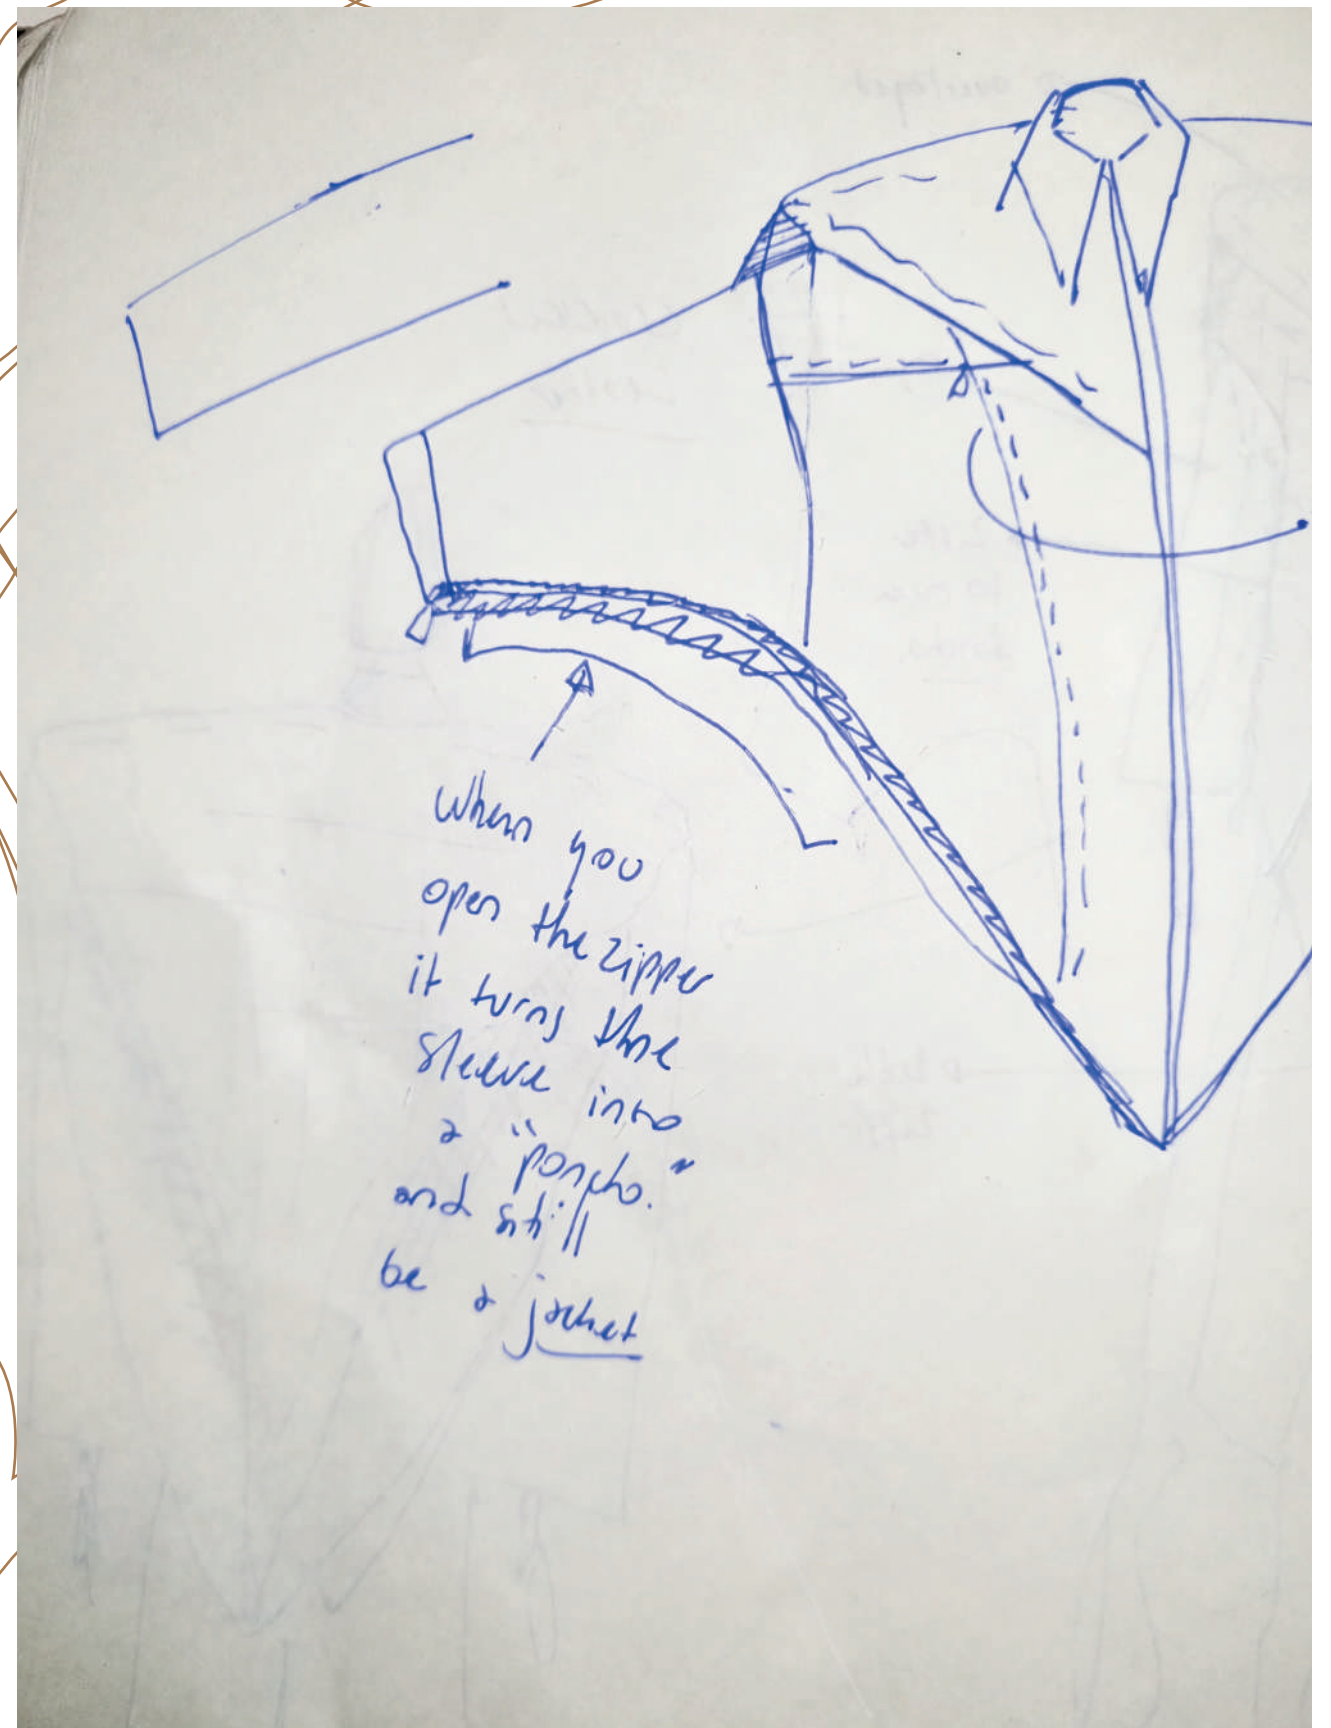 When you
open the zipper
it turns the
sleeve into
a "poncho."
and still
be a jacket